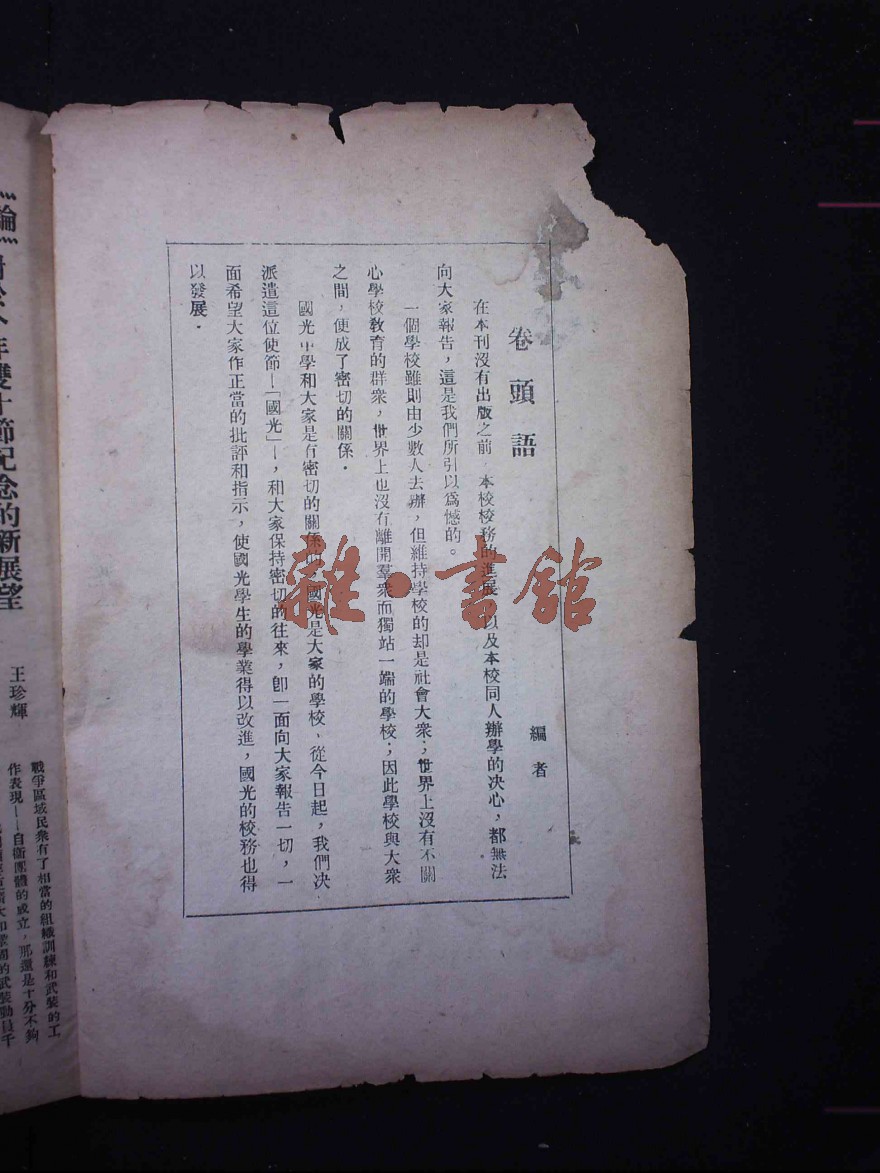 卷頭語
編者
在本刊沒有出版之前 本校校務的進展 以及本校同人辦學的決心，都無法
向大家報告，這是我們所引以爲憾的。
一個學校雖則由少數人去辦，但維持學校的却是社會大衆；世界上沒有不關
心學校敎育的群衆，世界上也沒有離開羣衆而獨站一端的學校；因此學校與大衆
之間，便成了密切的關係．
國光中學和大家是有密切的關係的，國光是大家的學校、從今日起，我們决
派遣這位使節—「國光」—，和大家保持密切的往來，卽一面向大家報告一切，一
面希望大家作正當的批評和指示，使國光學生的學業得以改進，國光的校務也得
以發展．
雜·書館
年雙十節紀念的新展望
王珍輝
戰爭區域民衆有了相當的組織訓練和武裝的工
作表現——自衛團體的成立，那還是十分不夠